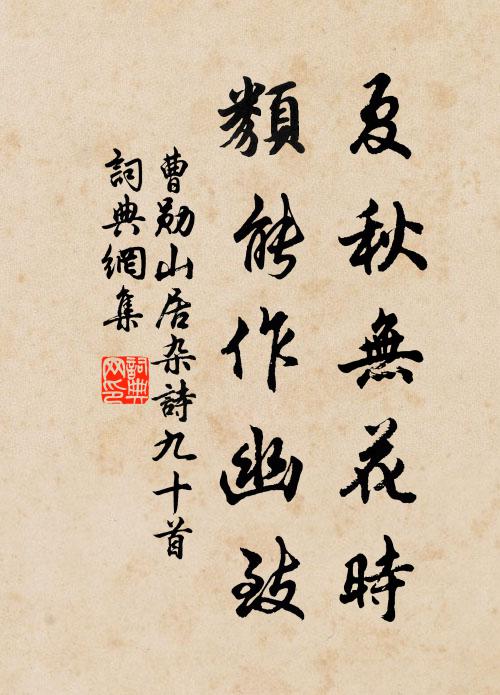 夏秋無花時
類能作幽致
曹勛山居杂詩九十首
詞典網集
詞典
网印